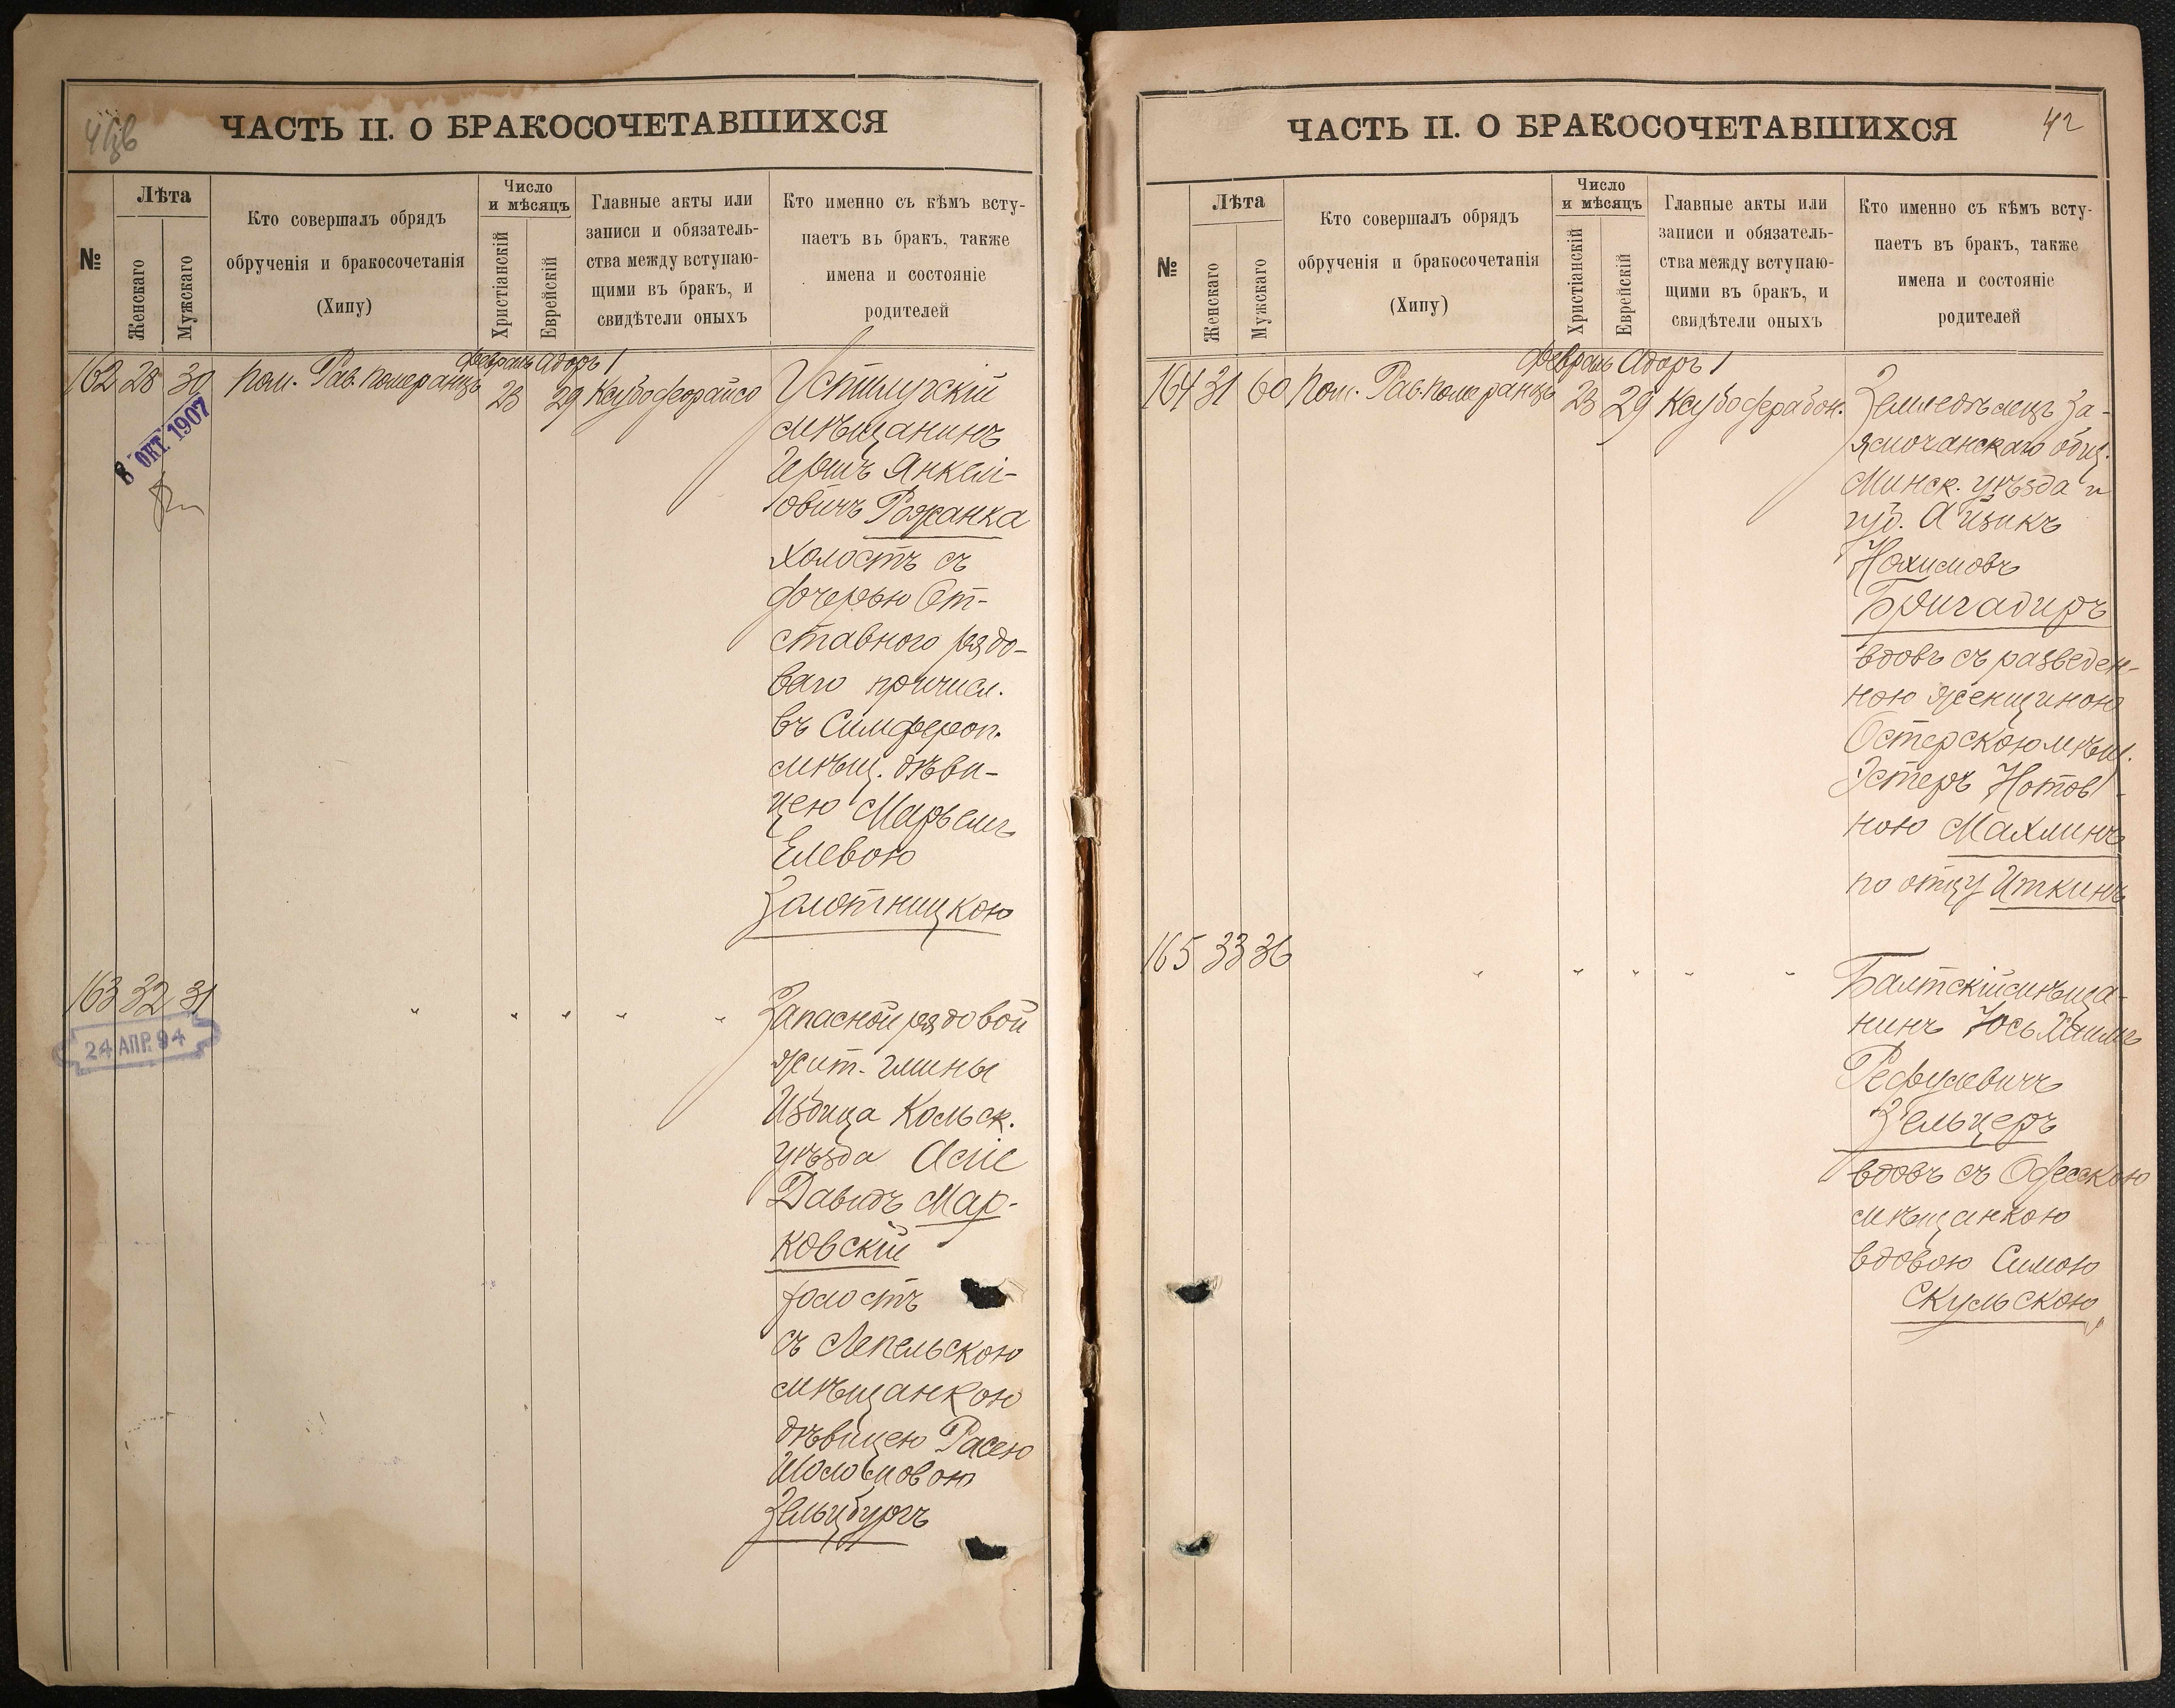 ЧАСТЬ II. О БРАКОСОЧЕТАВШИХСЯ
№
Лѣта
Женскаго
Мужскаго
Кто совершалъ обрядъ
обрученія и бракосочетанія
(Хипу)
Число
и мѣсяцъ
Христіанскій
Еврейскій
Главные акты или
записи и обязатель-
ства между вступаю-
щими въ бракъ, и
свидѣтели оныхъ
Кто именно съ кѣмъ всту-
паетъ въ бракъ, также
имена и состояніе
родителей
162 28 30 Пом. Рав. Померанцъ
Февраль Адоръ 1
23 29
8 ОКТ. 1907
Устилугскій
мѣщанинъ
Гершъ Янкелі-
овичъ Рожанка
холостъ съ
дочерью От-
ставного рядо-
вого причисл.
въ Симфероп.
мѣщ. дѣви-
цею Марьемъ
Елевою
Золотницкою
163 32 31 " " " " "
24 АПР. 94
Запасной рядовой
жит. гмины
Избица Кольск.
уѣзда
Давидъ Мар-
ковскій
холостъ
съ Лепельскою
мѣщанкою
дѣвицею Расею
Шоломовою
Зельцбургъ
ЧАСТЬ II. О БРАКОСОЧЕТАВШИХСЯ
42
№
Лѣта
Женскаго
Мужскаго
Кто совершалъ обрядъ
обрученія и бракосочетанія
(Хипу)
Число
и мѣсяцъ
Христіанскій
Еврейскій
Главные акты или
записи и обязатель-
ства между вступаю-
щими въ бракъ, и
свидѣтели оныхъ
Кто именно съ кѣмъ всту-
паетъ въ бракъ, также
имена и состояніе
родителей
164 31 60 Пом. Рав. Померанцъ
Февраль Адоръ 1
23 29
Земледѣлецъ За-
общ.
Минск. уѣзда и
губ. Айзикъ
Нохимовъ
Бригадиръ
вдовъ съ разведен-
ною женщиною
Остерскою мѣщ.
Эстеръ Нотов-
ною Махлинъ
по отцу Иткинъ
165 33 36 " " " " "
Балтскій мѣща-
нинъ Юсь Хаимъ
Рефулевичъ
Зельцеръ
вдовъ съ Одесскою
мѣщанкою
вдовою Симою
Скульскою